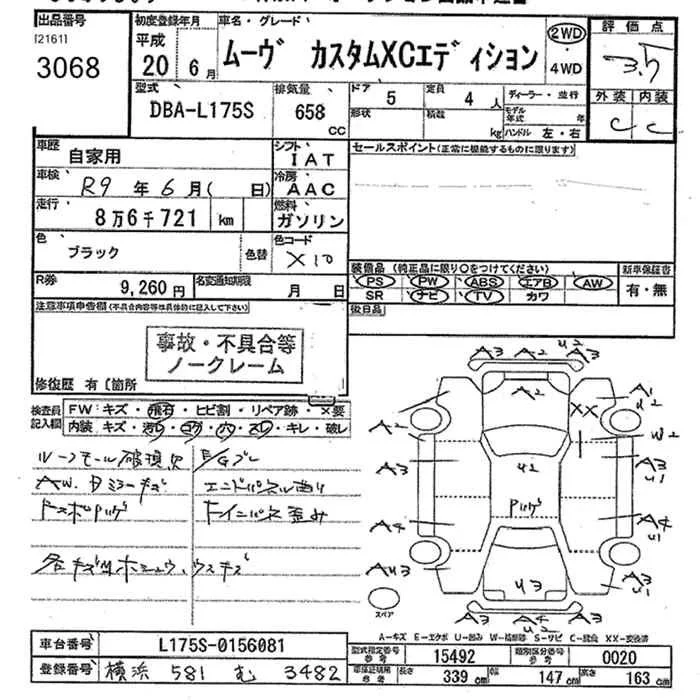 出品番号
[2161]
3068
初度登録年月
平成
20 6月
車名・グレード
ムーヴ カスタムXCエディション
2WD
・
4WD
評価点
3.5
外装 内装
C C
型式
DBA-L175S
排気量
658
cc
ドア
5
定員
4人
ディーラー・並行
形状
積数
kg
モデル年式 年
ハンドル 左・右
車歴
自家用
シフト
IAT
セールスポイント(正常に機能するものに限ります)
車検
R9 年 6月( 日)
冷房
AAC
走行
8万6千721 km
燃料
ガソリン
色
ブラック
色替
色コード
X10
R券
9,260円
名変通知期限
月 日
装備品(純正品に限り○をつけてください)
PS PW ABS エアB AW
SR ナビ TV カワ
新車保証書
有・無
後日品
注意事項申告欄(不具合内容等は具体的に記入して下さい)
事故・不具合等
ノークレーム
修復歴 有〔箇所
検査員
記入欄
FW:キズ・飛石・ヒビ割・リペア跡・×要
内装 キズ・汚レ・コゲ・穴・スレ・キレ・破レ
ルーフモール破損欠
AW.Dミラーキズ
エンドパネル曲り
トインパネ歪み
A3 A2 U2 A3
A2
A2
A1
U2
XX
W2
A3
A3
U1
U2
Pハゲ
A4
A4
U1
AU3
A3
U1
U3
スペア
A3 A4 A3
U2
A-キズ E-エクボ U-凹み W-補修跡 S-サビ C-腐食 XX-交換済
車台番号
L175S-0156081
登録番号
横浜 581 む 3482
型式指定番号
参考
15492
類別区分番号
参考
0020
車庫証明用
参考
長さ 339 cm
幅 147 cm
高さ 163 cm